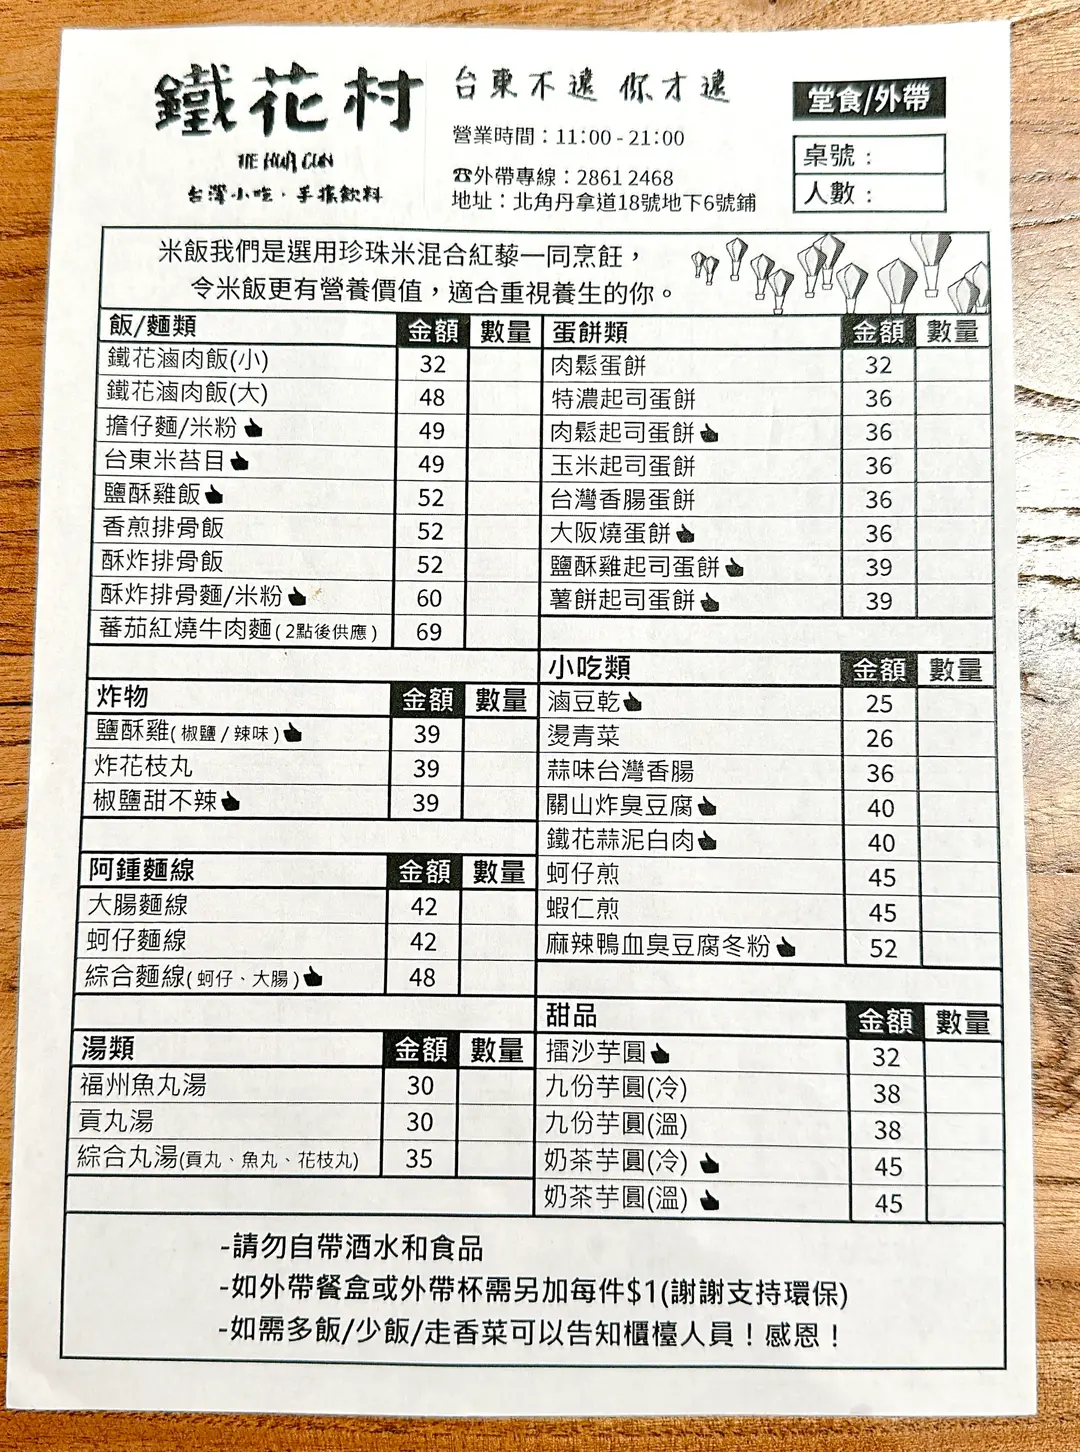 鐵花村
TIE HUA CUN
台灣小吃·手搖飲料
台東不遠 你才遠
營業時間：11:00 - 21:00
☎外帶專線：2861 2468
地址：北角丹拿道18號地下6號鋪
堂食/外帶
桌號：
人數：
米飯我們是選用珍珠米混合紅藜一同烹飪，
令米飯更有營養價值，適合重視養生的你。
飯/麵類 金額 數量
鐵花滷肉飯(小) 32
鐵花滷肉飯(大) 48
擔仔麵/米粉 49
台東米苔目 49
鹽酥雞飯 52
香煎排骨飯 52
酥炸排骨飯 52
酥炸排骨麵/米粉 60
蕃茄紅燒牛肉麵(2點後供應) 69
炸物 金額 數量
鹽酥雞(椒鹽/辣味) 39
炸花枝丸 39
椒鹽甜不辣 39
阿鍾麵線 金額 數量
大腸麵線 42
蚵仔麵線 42
綜合麵線(蚵仔、大腸) 48
湯類 金額 數量
福州魚丸湯 30
貢丸湯 30
綜合丸湯(貢丸、魚丸、花枝丸) 35
蛋餅類 金額 數量
肉鬆蛋餅 32
特濃起司蛋餅 36
肉鬆起司蛋餅 36
玉米起司蛋餅 36
台灣香腸蛋餅 36
大阪燒蛋餅 36
鹽酥雞起司蛋餅 39
薯餅起司蛋餅 39
小吃類 金額 數量
滷豆乾 25
燙青菜 26
蒜味台灣香腸 36
關山炸臭豆腐 40
鐵花蒜泥白肉 40
蚵仔煎 45
蝦仁煎 45
麻辣鴨血臭豆腐冬粉 52
甜品 金額 數量
擂沙芋圓 32
九份芋圓(冷) 38
九份芋圓(溫) 38
奶茶芋圓(冷) 45
奶茶芋圓(溫) 45
-請勿自帶酒水和食品
-如外帶餐盒或外帶杯需另加每件$1(謝謝支持環保)
-如需多飯/少飯/走香菜可以告知櫃檯人員！感恩！